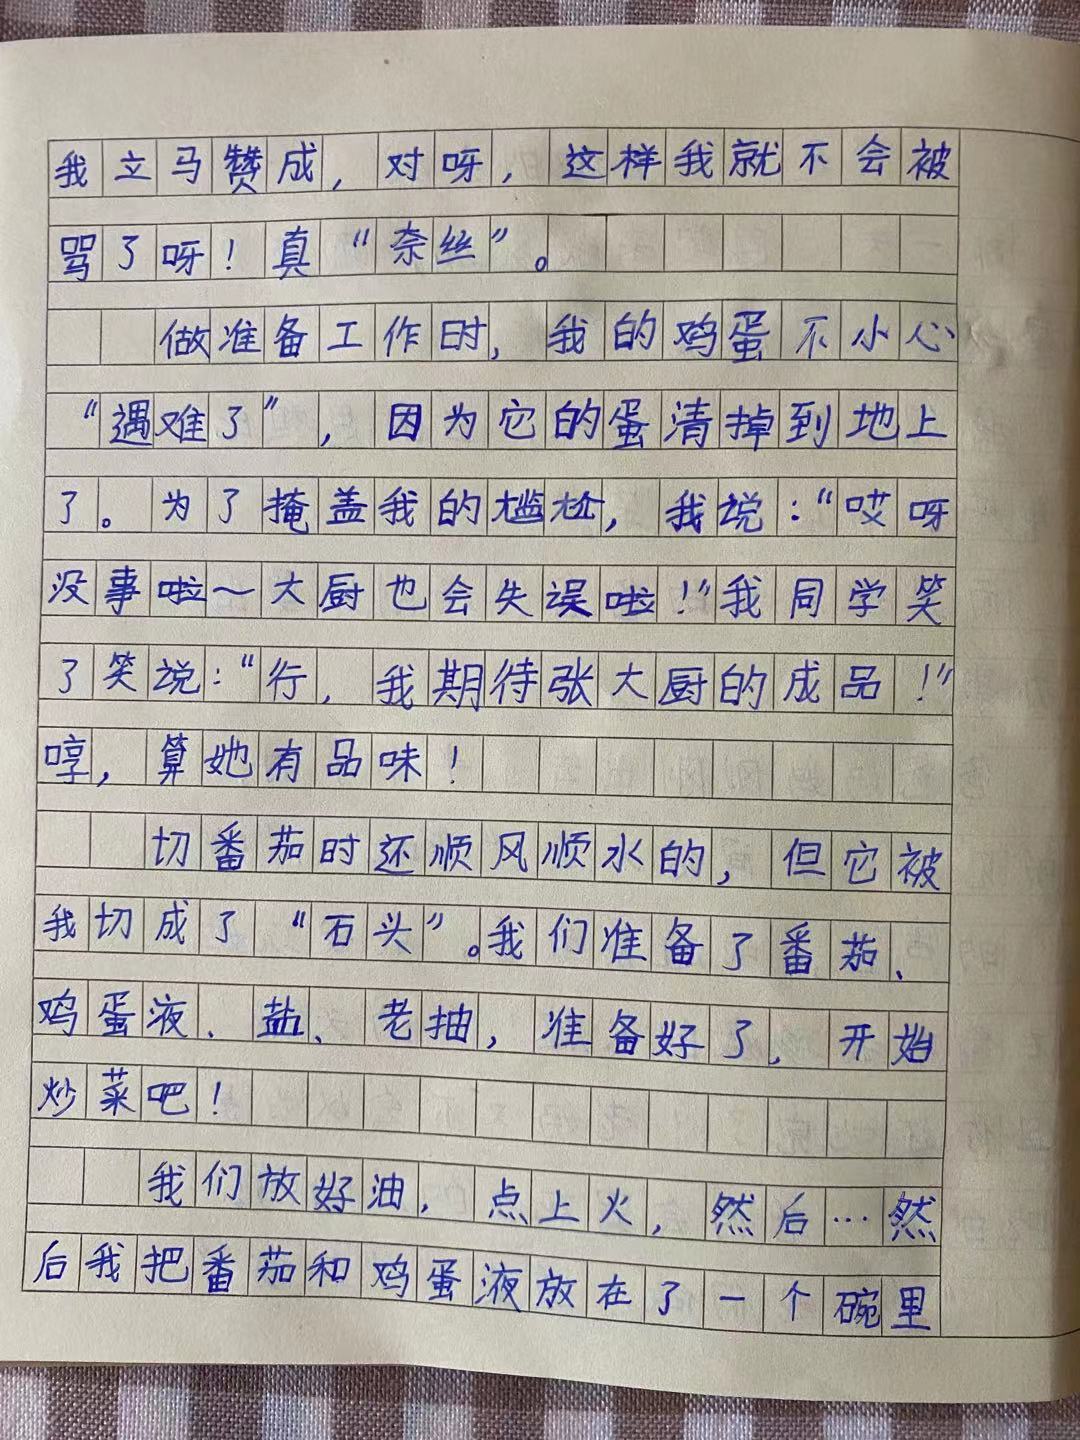 我立马赞成，对呀，这样我就不会被
骂了呀！真“奈丝”。
做准备工作时，我的鸡蛋不小心
“遇难了”，因为它的蛋清掉到地上
了。为了掩盖我的尴尬，我说：“哎呀
没事啦～大厨也会失误啦！”我同学笑
了笑说：“行，我期待张大厨的成品！”
哼，算她有品味！
切番茄时还顺风顺水的，但它被
我切成了“石头”。我们准备了番茄、
鸡蛋液、盐、老抽，准备好了，开始
炒菜吧！
我们放好油，点上火，然后…然
后我把番茄和鸡蛋液放在了一个碗里